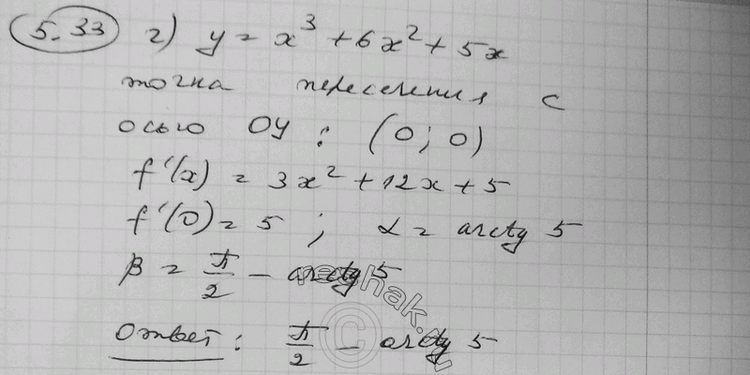 5.33 г) y = x³ + 6x² + 5x
точка пересечения с
осью OY : (0; 0)
f'(x) = 3x² + 12x + 5
f'(0) = 5 ; α = arctg 5
β = π/2 - arctg 5
Ответ : π/2 - arctg 5